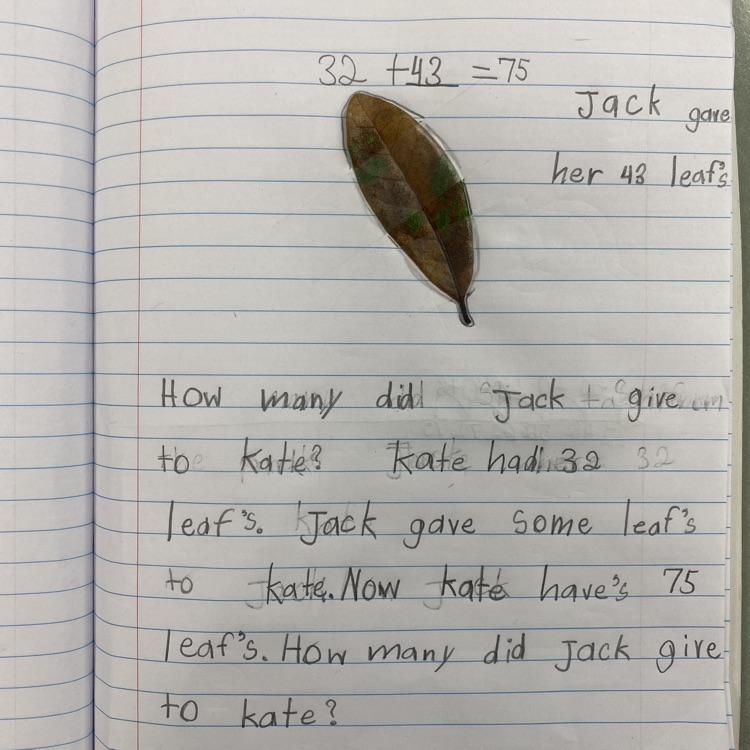 32 + 43 = 75
Jack gave
her 43 leaf's
How many did Jack give
to kate? kate had 32
leaf's. Jack gave some leaf's
to kate. Now kate have's 75
leaf's. How many did Jack give
to kate?